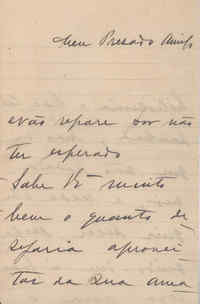 Meu Presado Amigo
não repare por não
ter esperado
Sabe Vª muito
bem o quanto de
sejaria aprovei
tar da sua ama